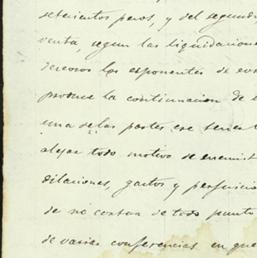 setecientos pesos, y del segundo
venta segun las liquidaciones
deseosos los esponentes de evi
produce la continuacion de
una de las partes
alejar todo motivo de enemist
dilaciones, gastos y perjuicio
de no cortar de todo punto
de varias conferencias en que